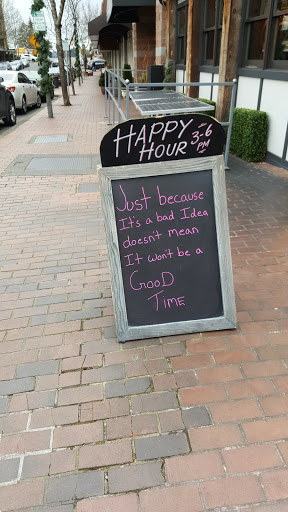 HAPPY
HOUR 3-6
PM
Just because
It's a bad Idea
doesn't mean
It won't be a
GooD
TIME